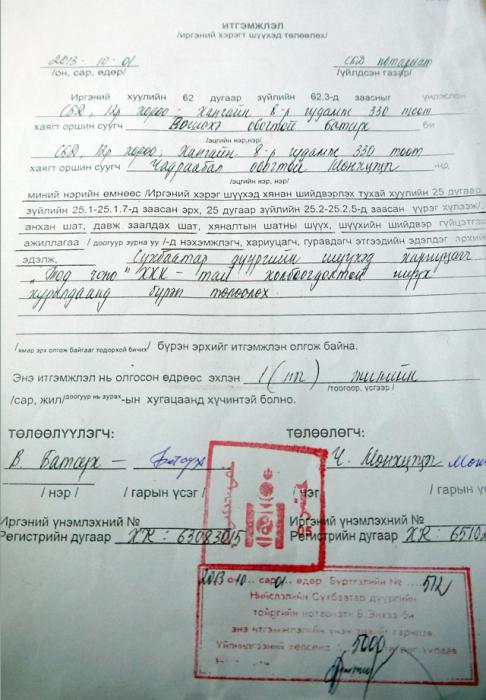 ИТГЭМЖЛЭЛ
/иргэний хэрэгт шүүхэд төлөөлөх/
2013 - 10 - 01 СБД нотариат
/он, сар, өдөр/ /үйлдсэн газар/
Иргэний хуулийн 62 дугаар зүйлийн 62.3-д заасныг үндэслэн
СБД, 12р хороо, Хангайн 8-р гудамж 330 тоот
хаягт оршин суугч овогтой Батсүх би
/эцгийн нэр,нэр/
СБД, 12р хороо, Хангайн 8-р гудамж 330 тоот
хаягт оршин суугч Чадраабал овогтой Мөнхцэцэг -нд
/эцгийн нэр, нэр/
миний нэрийн өмнөөс /Иргэний хэрэг шүүхэд хянан шийдвэрлэх тухай хуулийн 25 дугаар
зүйлийн 25.1-25.1.7-д заасан эрх, 25 дугаар зүйлийн 25.2-25.2.5-д заасан үүрэг хүлээж/,
анхан шат, давж заалдах шат, хяналтын шатны шүүх, шүүхийн шийдвэр гүйцэтгэх
ажиллагаа / доогуур зурна уу /-д нэхэмжлэгч, хариуцагч, гуравдагч этгээдийн эдэлдэг эрхийг
эдэлж, Сүхбаатар дүүргийн шүүхэд хариуцагч
" ХХК - тай холбогдолтой шүүх
хуралдаанд бүрэн төлөөлөх
/ямар эрх олгож байгааг тодорхой бичих/ бүрэн эрхийг итгэмжлэн олгож байна.
Энэ итгэмжлэл нь олгосон өдрөөс эхлэн 1 (нэг) жилийн
/тоогоор, үсгээр /
/сар, жил/доогуур нь зурах-ын хугацаанд хүчинтэй болно.
ТӨЛӨӨЛҮҮЛЭГЧ: ТӨЛӨӨЛӨГЧ:
Батсүх – Батсүх Ч. Мөнхцэцэг
/ нэр / / гарын үсэг / / гарын үсэ
Иргэний үнэмлэхний № Иргэний үнэмлэхний №
Регистрийн дугаар ХК : 63083015 Регистрийн дугаар ХК : 6510
05
2013 он 10 сар 01 өдөр Бүртгэлийн № 572
Нийслэлийн Сүхбаатар дүүргийн
тойргийн нотариатч В.Энхээ би
энэ итгэмжлэлийн үнэн зөвийг гэрчлэв.
Үйлчилгээний 5000 төгрөг хураав